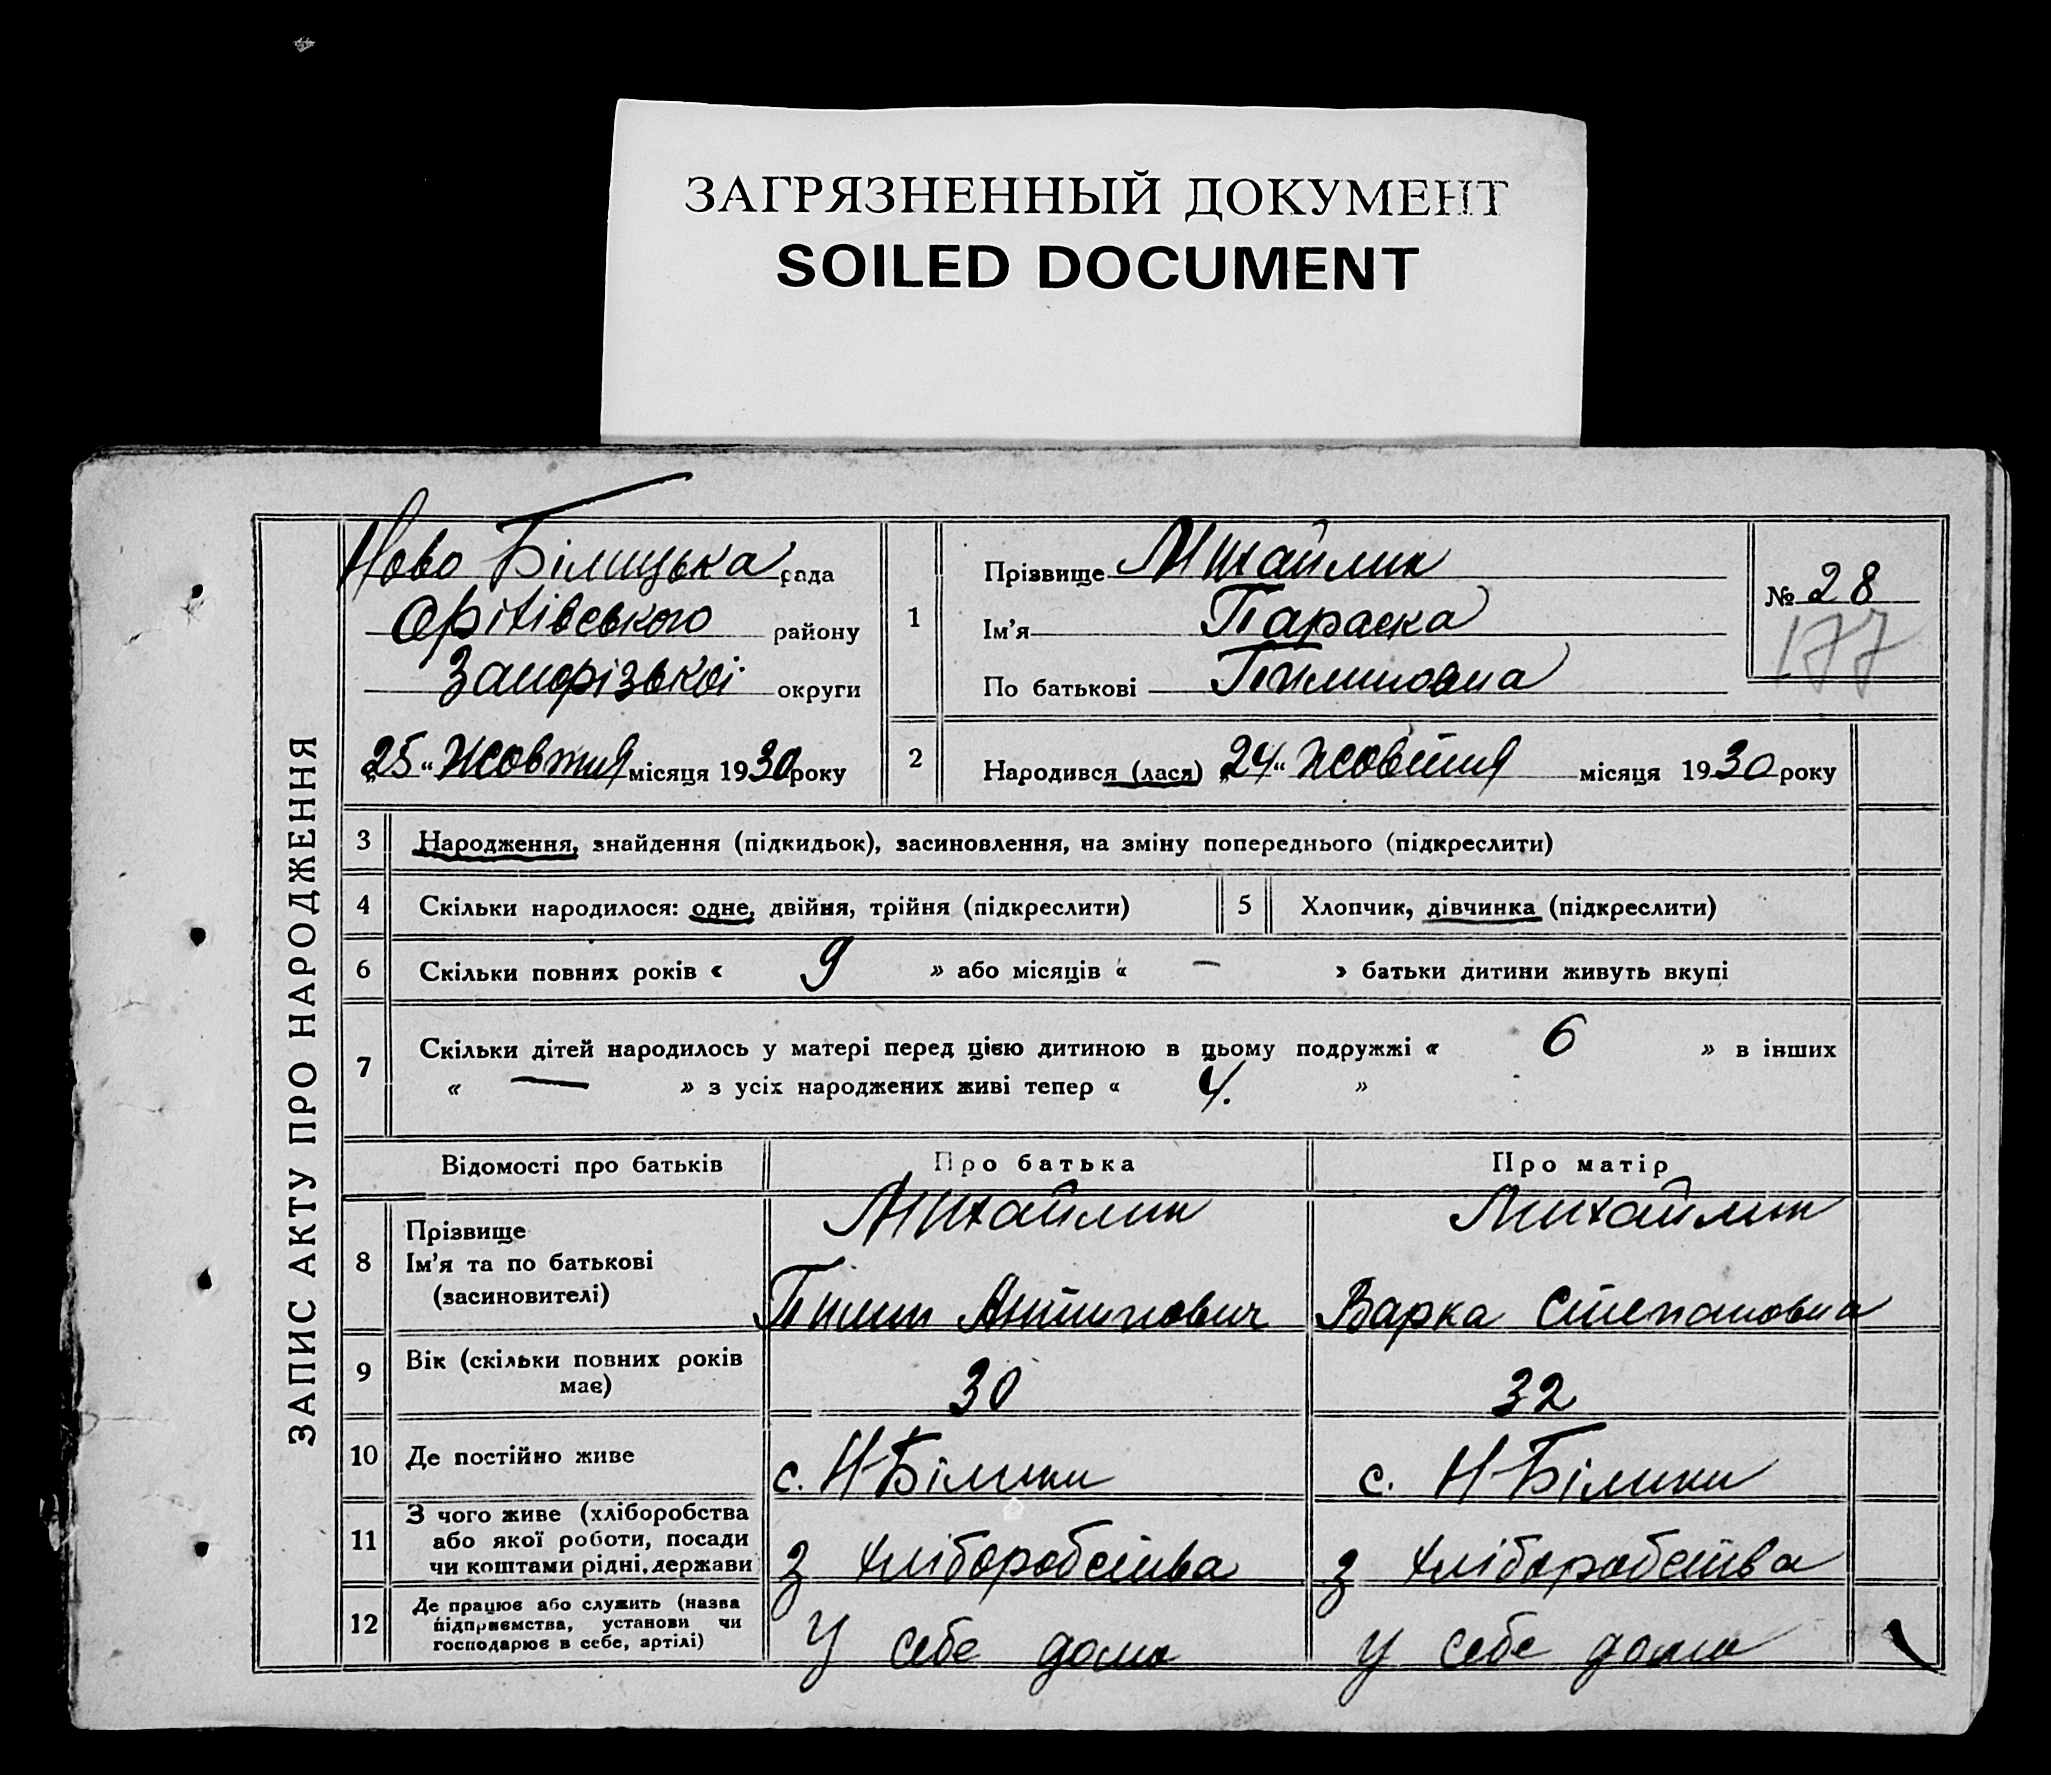 ЗАГРЯЗНЕННЫЙ ДОКУМЕНТ
SOILED DOCUMENT
ЗАПИС АКТУ ПРО НАРОДЖЕННЯ
Ново Білицька рада
Оріхівського району
Запорізької округи
„25“ Жовтня місяця 1930 року
1
Прізвище Михайлик
Ім'я Параска
По батькові Пилиповна
№ 28
177
2 Народився (лася) „24“ Жовтня місяця 1930 року
3 Народження, знайдення (підкидьок), засиновлення, на зміну попереднього (підкреслити)
4 Скільки народилося: одне, двійня, трійня (підкреслити) 5 Хлопчик, дівчинка (підкреслити)
6 Скільки повних років « 9 » або місяців « — » батьки дитини живуть вкупі
7 Скільки дітей народилось у матері перед цією дитиною в цьому подружжі « 6 » в інших
« — » з усіх народжених живі тепер « 4. »
Відомості про батьків Про батька Про матір
8 Прізвище Ім'я та по батькові (засиновителі)
Михайлик Михайлик
Пилип Антипович Варка Степановна
9 Вік (скільки повних років має) 30 32
10 Де постійно живе с. Н-Білики с. Н-Білики
11 З чого живе (хліборобства або якої роботи, посади чи коштами рідні, держави
З хліборобства З хліборобства
12 Де працює або служить (назва підприємства, установи чи господарює в себе, артілі)
У себе дома У себе дома